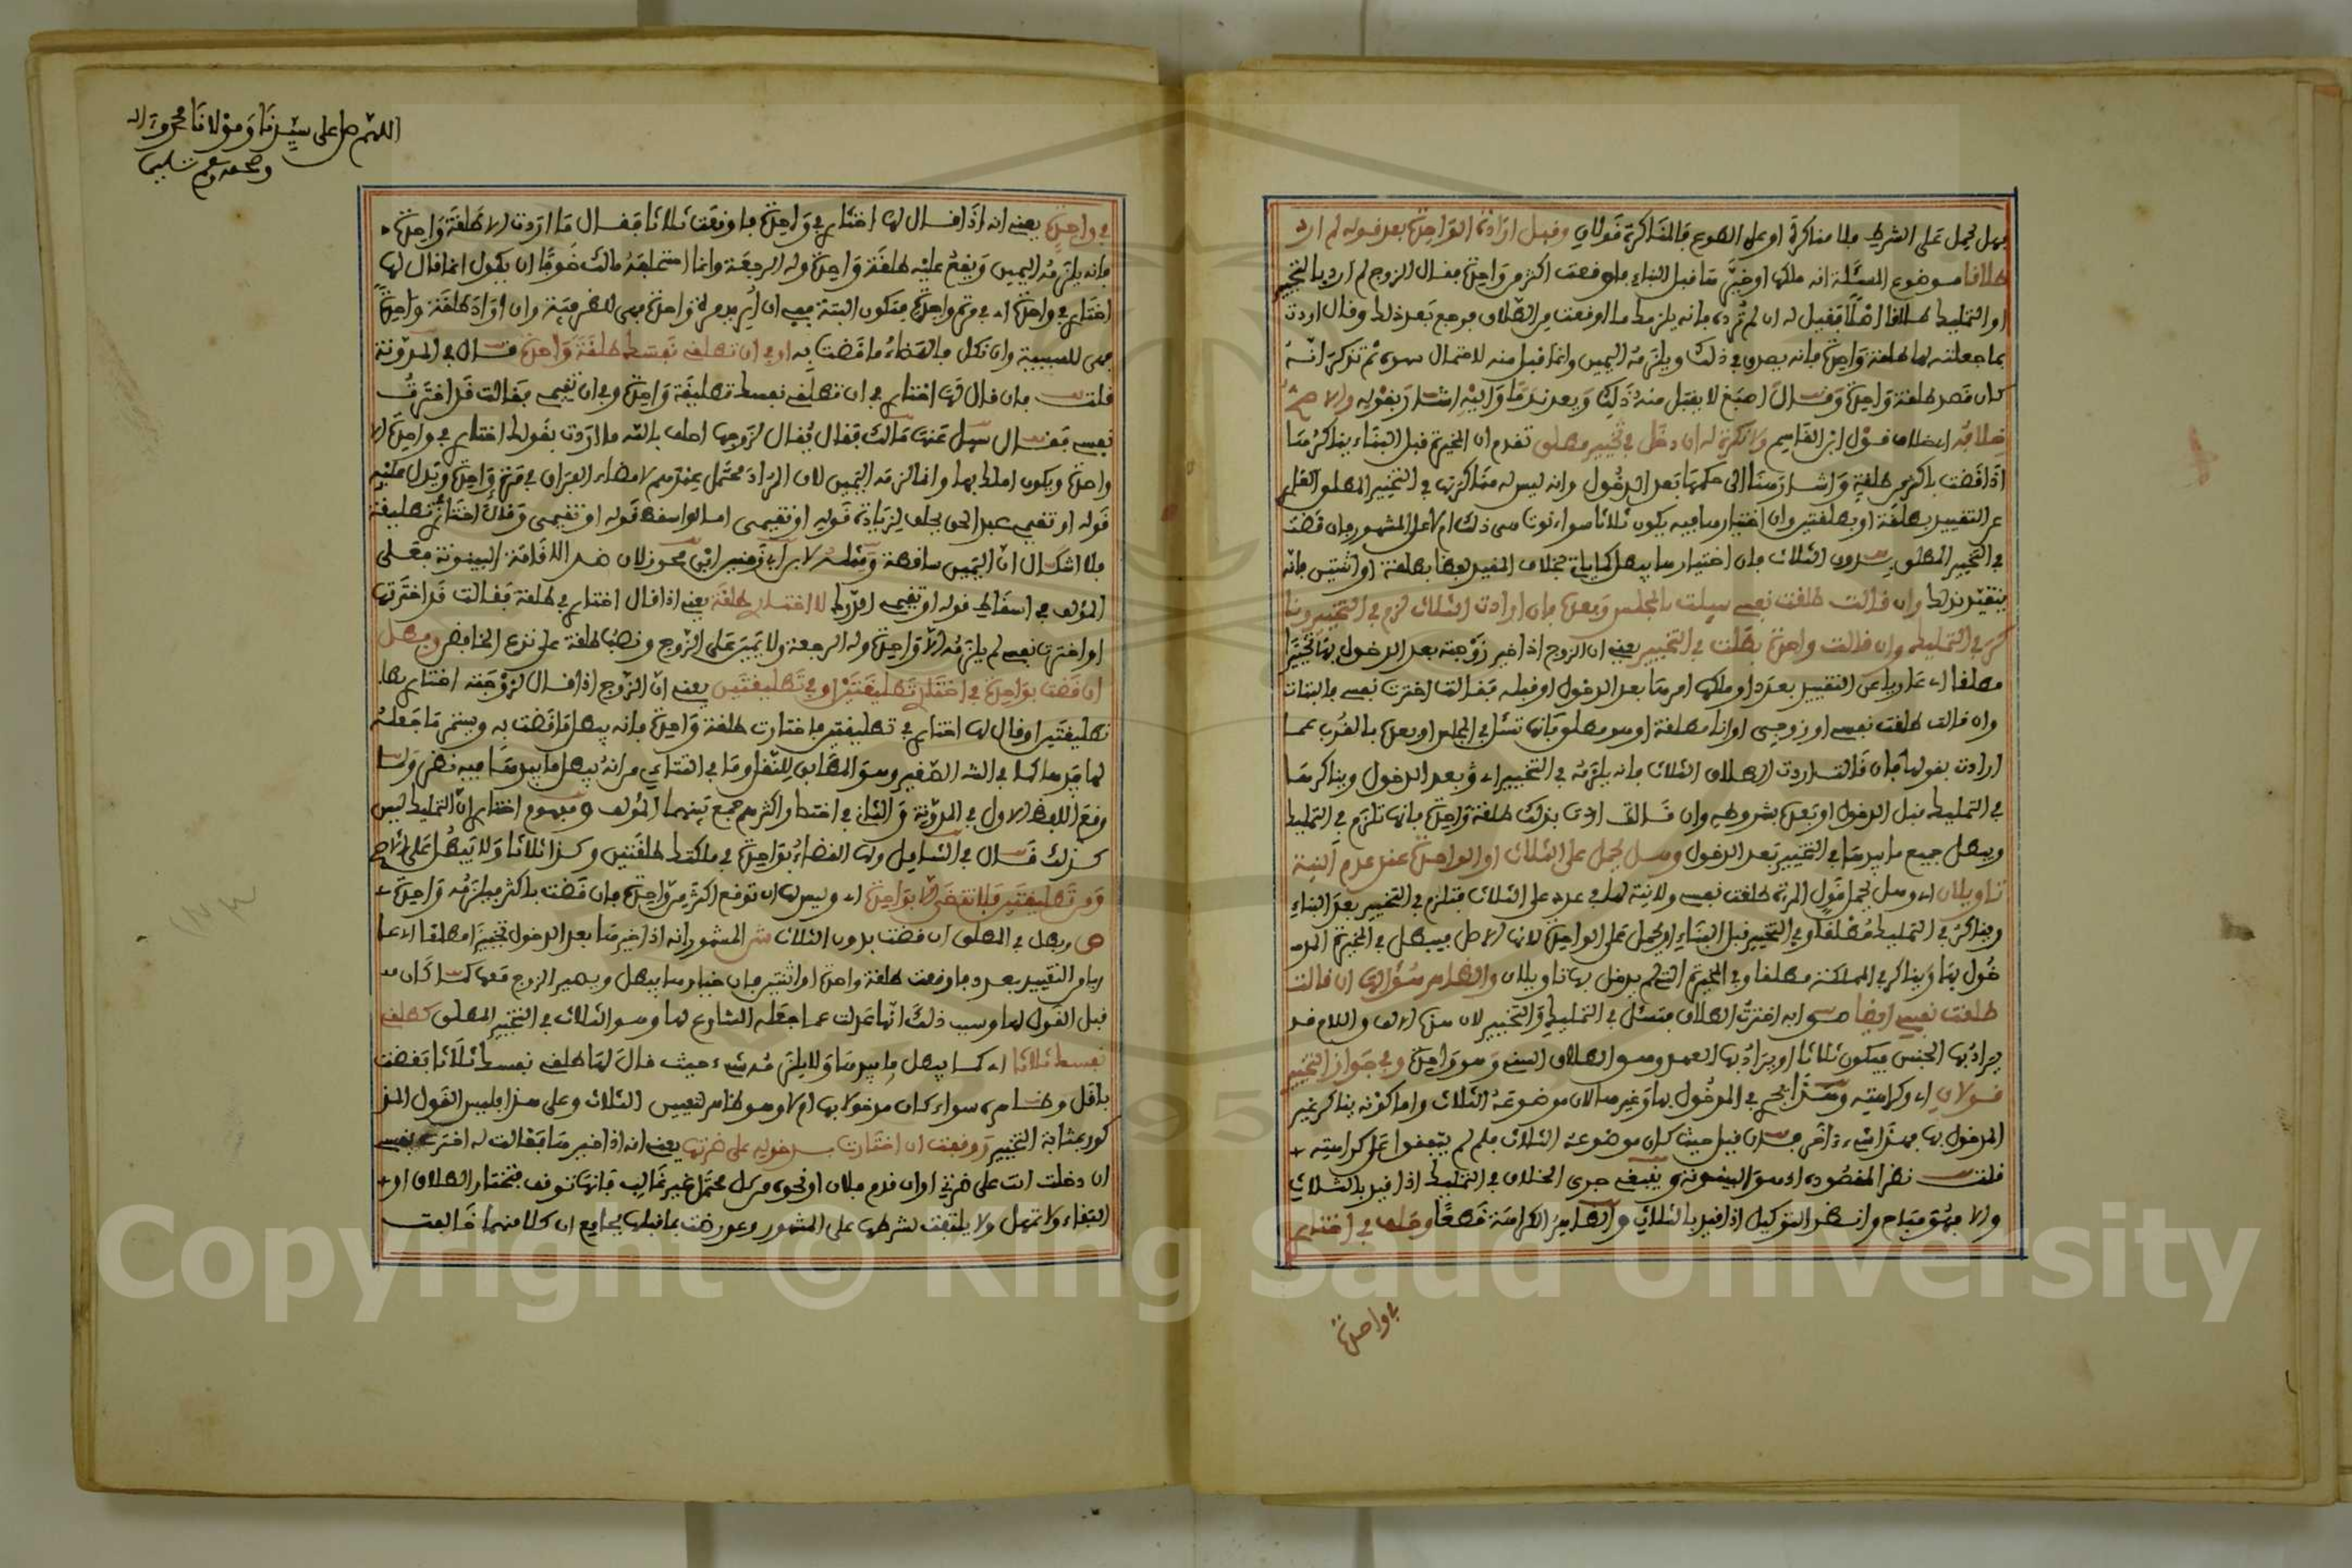 فهل يحمل على الشرط فلا مناكرة او على الطوع فالمناكرة قولان وقبل ارادة الواحدة بعد قوله لم ارد
طلاقا موضوع المسئلة انه ملكها او خيرها قبل البناء فاوقعت اكثر من واحدة فقال الزوج لم ارد بالتخيير
او التمليك طلاقا اصلا فقيل له ان لم ترده فانه يلزمك ما اوقعت من الطلاق فرجع بعد ذلك وقال اردت
بما جعلته لها طلقة واحدة فانه يصدق في ذلك ويلزمه اليمين وانما قبل منه لاحتمال سهوه ثم تذكر انه
كان قصد طلقة واحدة وقال اصبغ لا يقبل منه ذلك ويعد ندما واليه اشار بقوله والاصح
خلافه اي خلاف قول ابن القاسم ولا نكرة له ان دخل في تخيير مطلق تقدم ان المخيرة قبل البناء يناكرها
اذا قضت باكثر من طلقة واشار هنا الى حكمها بعد الدخول وانه ليس له مناكرتها في التخيير المطلق العاري
عن التقييد بطلقة او بطلقتين وان اختيارها فيه يكون ثلاثا سواء نوت هي ذلك ام لا على المشهور فان قضت
في التخيير المطلق بدون الثلاث فان اختيارها يبطل كما ياتي بخلاف المقيد لفظا بطلقة او اثنتين فانه
يتقيد بذلك وان قالت طلقت نفسي سيلت بالمجلس وبعده فان ارادت الثلاث لزم في التخيير ونا
كر في التمليك وان قالت واحدة بطلت في التخيير يعني ان الزوج اذا خير زوجته بعد الدخول بها تخييرا
مطلقا اي عاريا عن التقييد بعدد او ملكها امرها بعد الدخول او قبله فقالت اخترت نفسي فالبتات
وان قالت طلقت نفسي او زوجي او انا مطلقة او هو مطلق فانها تسئل في المجلس او بعده بالقرب عما
ارادت بقولها فان قالت اردت الطلاق الثلاث فانه يلزمه في التخيير اي وبعد الدخول ويناكرها
في التمليك قبل الدخول او بعده بشروطه وان قالت اردت بذلك طلقة واحدة فانها تلزم في التمليك
ويبطل جميع ما بيدها في التخيير بعد الدخول وهل يحمل على الثلاث او الواحدة عند عدم النية
تاويلان اي وهل يحمل قول المرءة طلقت نفسي ولا نية لها في عدد على الثلاث فتلزم في التخيير بعد البناء
ويناكر في التمليك مطلقا وفي التخيير قبل البناء او يحمل على الواحدة لانها الاصل فيبطل في المخيرة المد
خول بها ويناكر في المملكة مطلقا وفي المخيرة التي لم يدخل بها تاويلان والظاهر سؤالها ان قالت
طلقت نفسي ايضا اي اخترت الطلاق فتسئل في التمليك والتخيير لان هذه الالف واللام قد
يراد بها الجنس فيكون ثلاثا او يراد بها العهد وهو الطلاق السني وهو واحدة وفي جواز التخيير
قولان اي وكراهيته وهذا يجري في المدخول بها وغيرها لان موضوعه الثلاث واما كونه يناكر غير
المدخول بها فهذا شيء ءاخر فان قيل حيث كان موضوعه الثلاث فلم لم يتفقوا على كراهيته
قلت نظر المقصوده اي هو البينونة وينبغي جرى الخلاف في التمليك اذا قيد بالثلاث
والا فهو مباح وانظر التوكيل اذا قيد بالثلاث والظاهر الكراهة قطعا وحلف في اختاري
في واحدة
اللهم صل على سيدنا ومولانا محمد وءاله
وصحبه وسلم تسليما
في واحدة يعني انه اذا قال لها اختاري في واحدة فاوقعت ثلاثا فقال ما اردت الا طلقة واحدة
فانه يلزمه اليمين ويقع عليه طلقة واحدة وله الرجعة وانما استحلفه مالك خوفا ان يكون انما قال لها
اختاري في واحدة اي في مرة واحدة فتكون البتة
قلت فان قال لها اختاري في ان تطلقي نفسك تطليقة واحدة وفي ان تقيمي فقالت قد اخترت
نفسي فقال سيل عنها مالك فقال يقال لزوجها احلف بالله ما اردت بقولك اختاري في واحدة الا
واحدة ويكون املك بها وانما لزمه اليمين لان المراد محتمل
قوله او تقيمي عبد الحق يحلف لزيادة قوله او تقيمي اما لو اسقط قوله او تقيمي وقال اختاري تطليقة
فلا اشكال ان اليمين ساقطة ومثله لابن ابي زمنين ابن محرز لان ضد الاقامة البينونة فعلى
المؤلف في اسقاط قوله او تقيمي لا اختاري طلقة يعني اذا قال اختاري في طلقة فقالت قد اخترتها
او اخترت نفسي لم يلزمه الا واحدة وله الرجعة ولا يمين على الزوج ونصب طلقة على نزع الخافض وبطل
ان قضت بواحدة في اختاري تطليقتين او في تطليقتين يعني ان الزوج اذا قال لزوجته اختاري
تطليقتين او قال لها اختاري في تطليقتين فاختارت طلقة واحدة فانه يبطل ما قضت به ويستمر ما جعله
لها بيدها كما في الشر الصغير وهو المطابق للنقل وما في التتاءي من انه يبطل ما بيدها فيه نظر ولما
وقع اللفظ الاول في المدونة والثاني في اختصار اكثرهم جمع بينهما المؤلف ومفهوم اختاري ان التمليك ليس
كذلك قال في الشامل ولها القضاء بواحدة في ملكتك طلقتين وكذا ثلاثا ولا يبطل على الاصح
ومن تطليقتين فلا تقضي الا بواحدة اي وليس لها ان توقع اكثر من واحدة فان قضت باكثر فيلزمه واحدة
ص وبطل في المطلق ان قضت بدون الثلاث ش المشهور انه اذا خيرها بعد الدخول تخييرا مطلقا اي عا
ريا من التقييد بعدد فاوقعت طلقة واحدة او اثنتين فان خيارها يبطل ويصير الزوج معها كما كان
قبل القول لها وسبب ذلك انها عدلت عما جعله الشارع لها وهو الثلاث في التخيير المطلق كطلقي
نفسك ثلاثا اي كما يبطل ما بيدها ولا يلزمه شيء حيث قال لها طلقي نفسك ثلاثا فقضت
باقل وظاهره سواء كان مدخولا بها ام لا وهو ظاهر لتعيين الثلاث وعلى هذا فليس القول المذ
كور بمثابة التخيير ووقفت ان اختارت بدخوله على ضرتها يعني انه اذا خيرها فقالت له اخترت نفسي
ان دخلت انت على ضرتي او ان قدم فلان او نحوه من كل محتمل غير غالب فانها توقف فتختار الطلاق او
البقاء ولا تمهل ولا يلتفت لشرطها على المشهور وعورضت بما قبلها بجامع ان كلا منهما خالفت